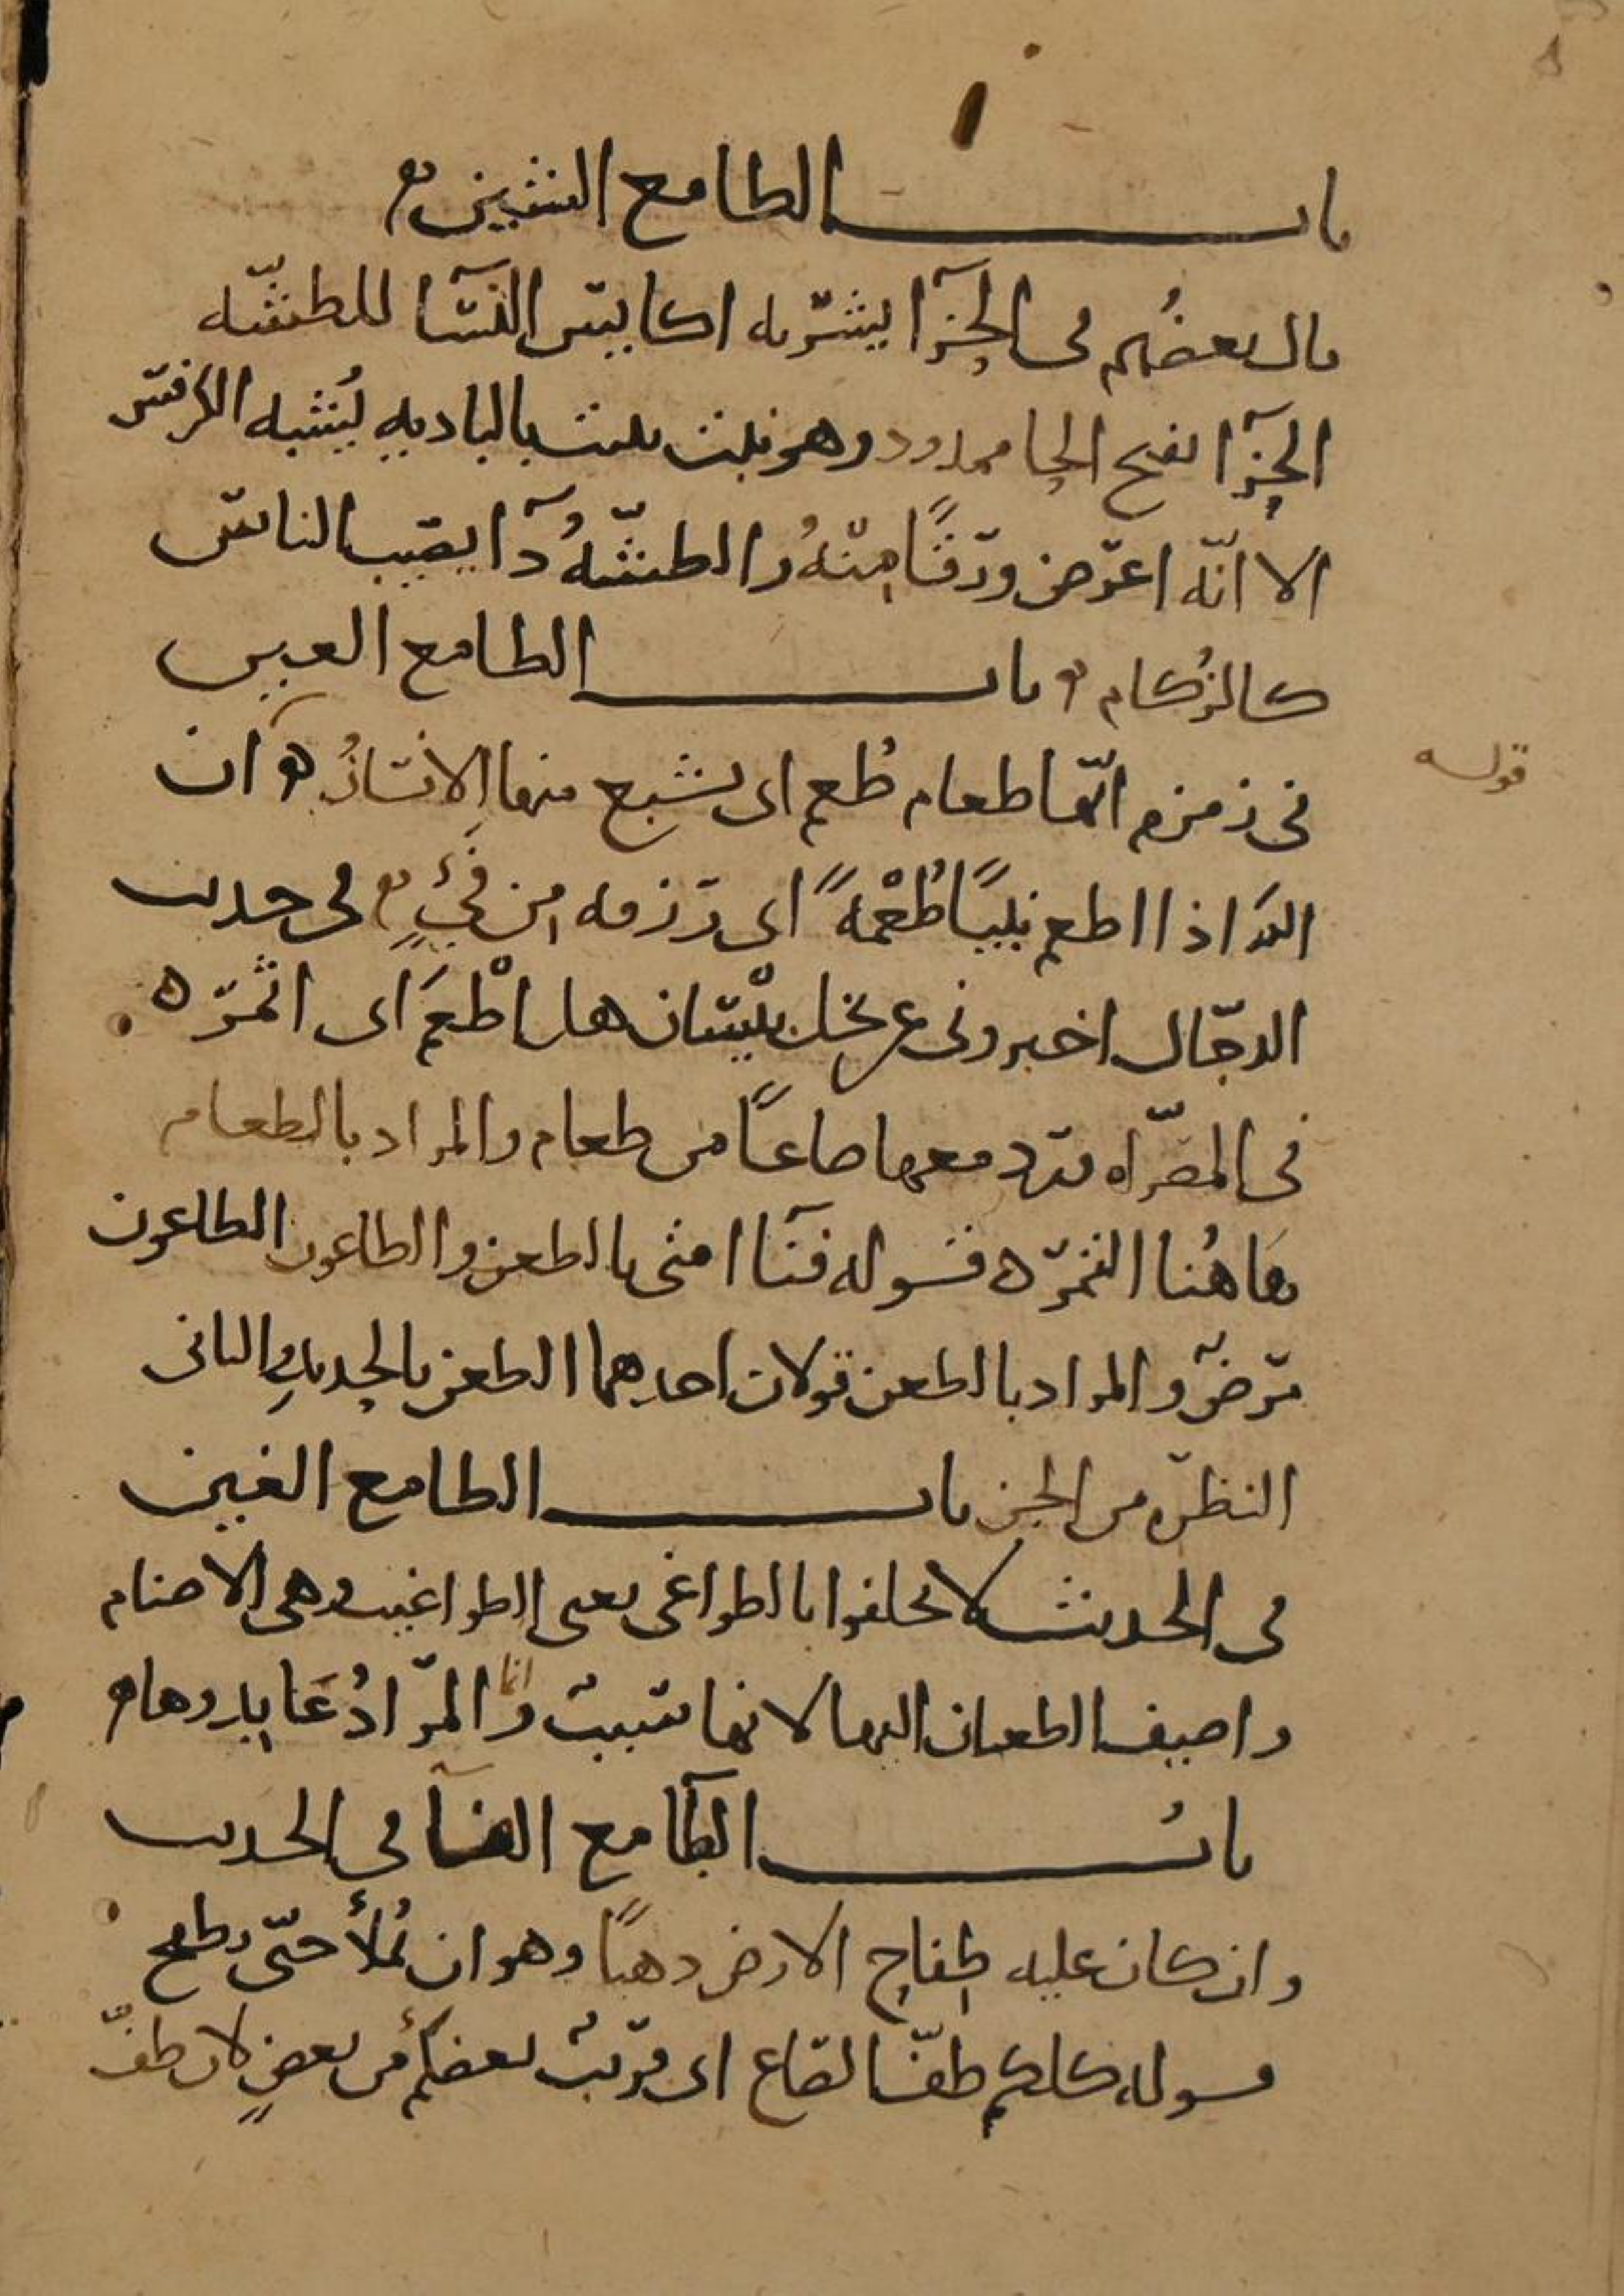 باب الطا مع الشين
قال بعضهم في الحزآ يشربه اكايس النسآ للطشّه
الحزآ بفتح الحا ممدود وهو نبت ينبت بالباديه يُشبه الكرفس
الا انّه اعرض ورقًا منهُ والطشّهُ دآ يصيب الناس
كالزُكام باب الطا مع العين
قوله
في زمزم انّها طعام طُعم اى يشبع منها الانسانُ ان
اللهَ اذا اطعم نبيًا طُعْمةً اى رزقه من فَيْءٍ في حديث
الدجّال اخبروني عن نخل بَيْسان هل اطْعَمَ اى اثمرَ ه
في المصرّاه يرد معها صاعًا من طعام والمراد بالطعام
هاهُنا التمرُ ه قوله فنآ امتى بالطعن والطاعون الطاعون
مرضٌ والمراد بالطعن قولان احدهما الطعن بالحديدِ والثانى
النظره من الجن باب الطا مع الغين
في الحديث لا تحلفوا بالطواغى يعنى الطواغيت وهى الاصنام
واضيف الطغيان اليها لانها سببٌ وانما المرادُ عَابدوها
بابُ الطا مع الفآ في الحديث
وان كان عليه طِفاح الارض ذهبًا وهو ان تُملأ حتّى يطفح
قوله كلكم طفّ الصاع اى قريبٌ بعضكم من بعضٍ لان طفّ